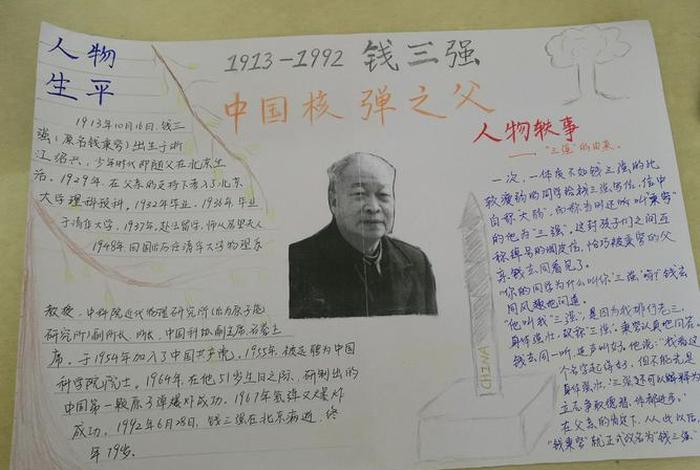 人物
生平
1913-1992 钱三强
中国核弹之父
1913年10月16日,钱三
强(原名钱秉穹)出生于浙
江绍兴,少年时代即随父在北京生
活。1929年,在父亲的支持下考入了北京
大学理科预科,1932年毕业。1936年毕业
于清华大学,1937年,赴法留学,师从居里夫人
1948年回国后历任清华大学物理系
教授,中科院近代物理研究所(后为原子能
研究所)副所长、所长,中国科协副主席,名誉主
席。于1954年加入了中国共产党。1955年,被选聘为中国
科学院院士。1964年,在他51岁生日之际,研制出的
中国第一颗原子弹爆炸成功。1967年氢弹又爆炸
成功。1992年6月28日,钱三强在北京病逝,终
年79岁。
人物轶事
——"三强"的由来。
一次,一体质不如钱三强的比
较瘦弱的同学给钱三强写信,信中
自称"大弱",而称当时还叫"秉穹"
的他为"三强"。这封孩子们之间互
称绰号的调皮信,恰巧被秉穹的父
亲钱玄同看见了。
"你的同学为什么叫你'三强'呀?"钱玄
同风趣地问道。
"他叫我'三强',是因为我排行老三,
身体强壮,故称'三强'。"秉穹认真地回答。
钱玄同一听,连声叫好。他说:"我看这
个名字起得好,但不能光是
身体强壮,'三强'还可以解释为
立志争取德智体都进步。"
在父亲的肯定下,从此以后,
"钱秉穹"就正式改名为"钱三强"